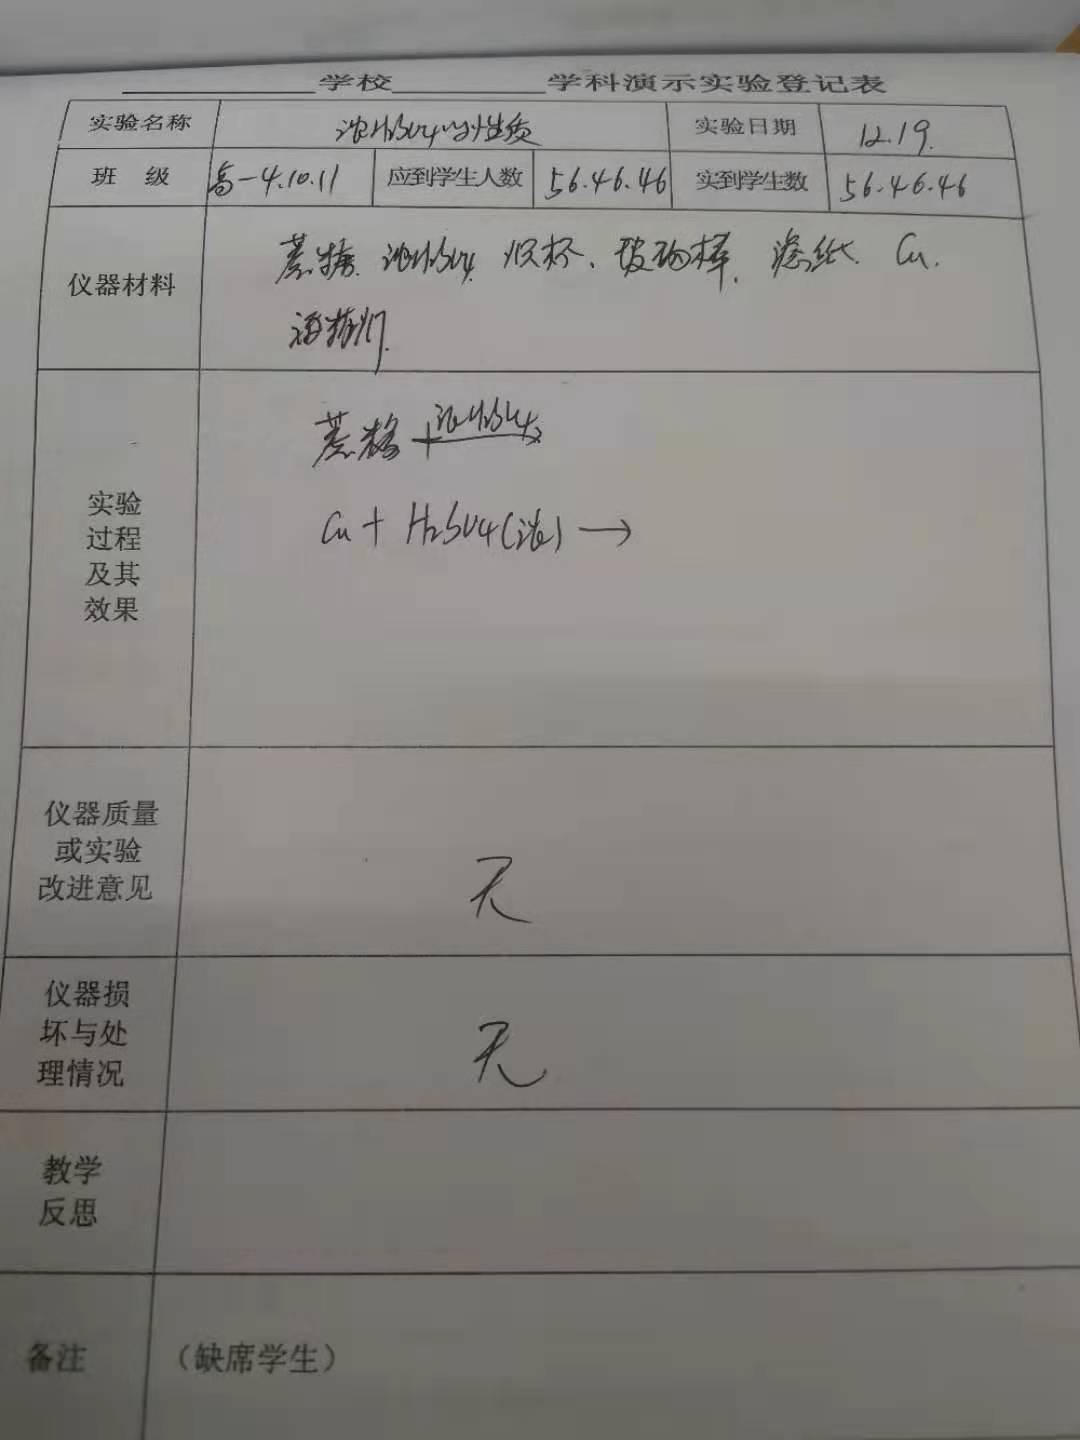 学校 学科演示实验登记表
实验名称 浓H₂SO₄的性质 实验日期 12.19.
班 级 高一4.10.11 应到学生人数 56.46.46 实到学生数 56.46.46
仪器材料 蔗糖. 浓H₂SO₄ 烧杯、玻璃棒. 滤纸. Cu.
酒精灯.
蔗糖 + 浓H₂SO₄
Cu + H₂SO₄(浓) →
实验
过程
及其
效果
仪器质量
或实验
改进意见
无
仪器损
坏与处
理情况
无
教学
反思
备注 (缺席学生)